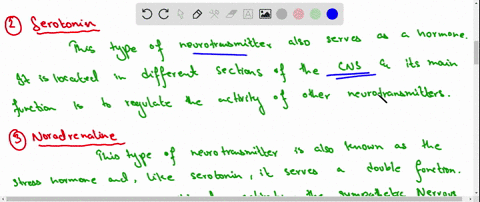 ② Serotonin
This type of neurotransmitter also serves as a hormone.
It is located in different sections of the CNS & its main
function is to regulate the activity of other neurotransmitters.
③ Noradrenaline
This type of neurotrasmitter is also known as the
stress hormone and, like serotonin, it serves a double function.
the sympathetic Nervous